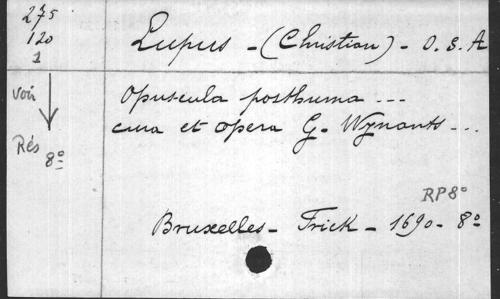 275
120
1
Lupus - (Christian) - O. S. A
voir
Rés
8º
Opuscula posthuma ...
cura et opera G. Wynants ...
RP 8º
Bruxelles - Frick - 1690 - 8º